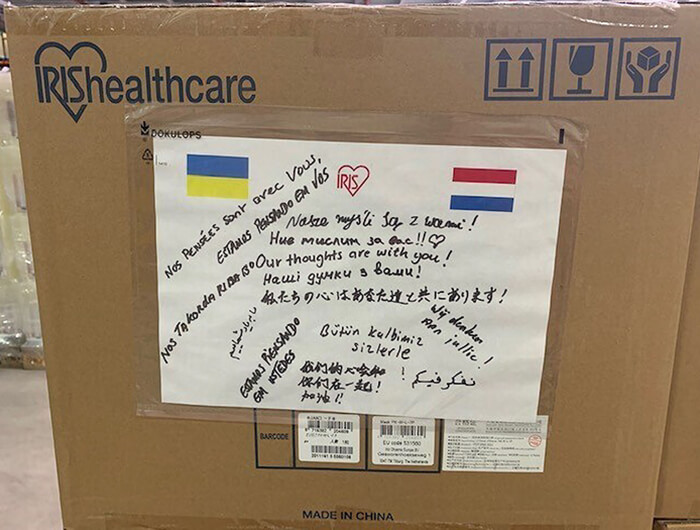 IRIShealthcare
DOKULOPS
IRIS
NOS PENSÉES SONT AVEC VOUS,
ESTAMOS PENSANDO EM VOS
Nasze myśli są z wami!
Ние мислим за вас!!♡
NOS TA KORDA RIBA BO
Our thoughts are with you!
Наші думки з вами!
私たちの心はあなた達と共にあります!
Wij denken
aan jullie!
Bütün kalbimiz
sizlerle
ESTAMOS PENSANDO
EM
我们的心会和
你们在一起!
加油!!
نفكر فيكم!
BARCODE
EU code 531560
MADE IN CHINA